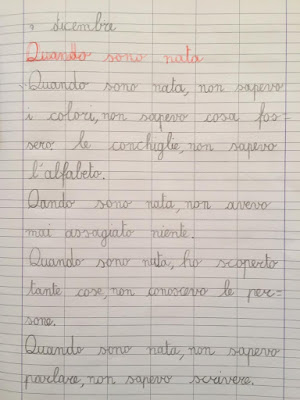 dicembre
Quando sono nata
Quando sono nata, non sapevo
i colori, non sapevo cosa fos=
sero le conchiglie, non sapevo
l'alfabeto.
Qando sono nata, non avevo
mai assagiato niente.
Quando sono nata, ho scoperto
tante cose, non conoscevo le per=
sone.
Quando sono nata, non sapevo
parlare, non sapevo scrivere.